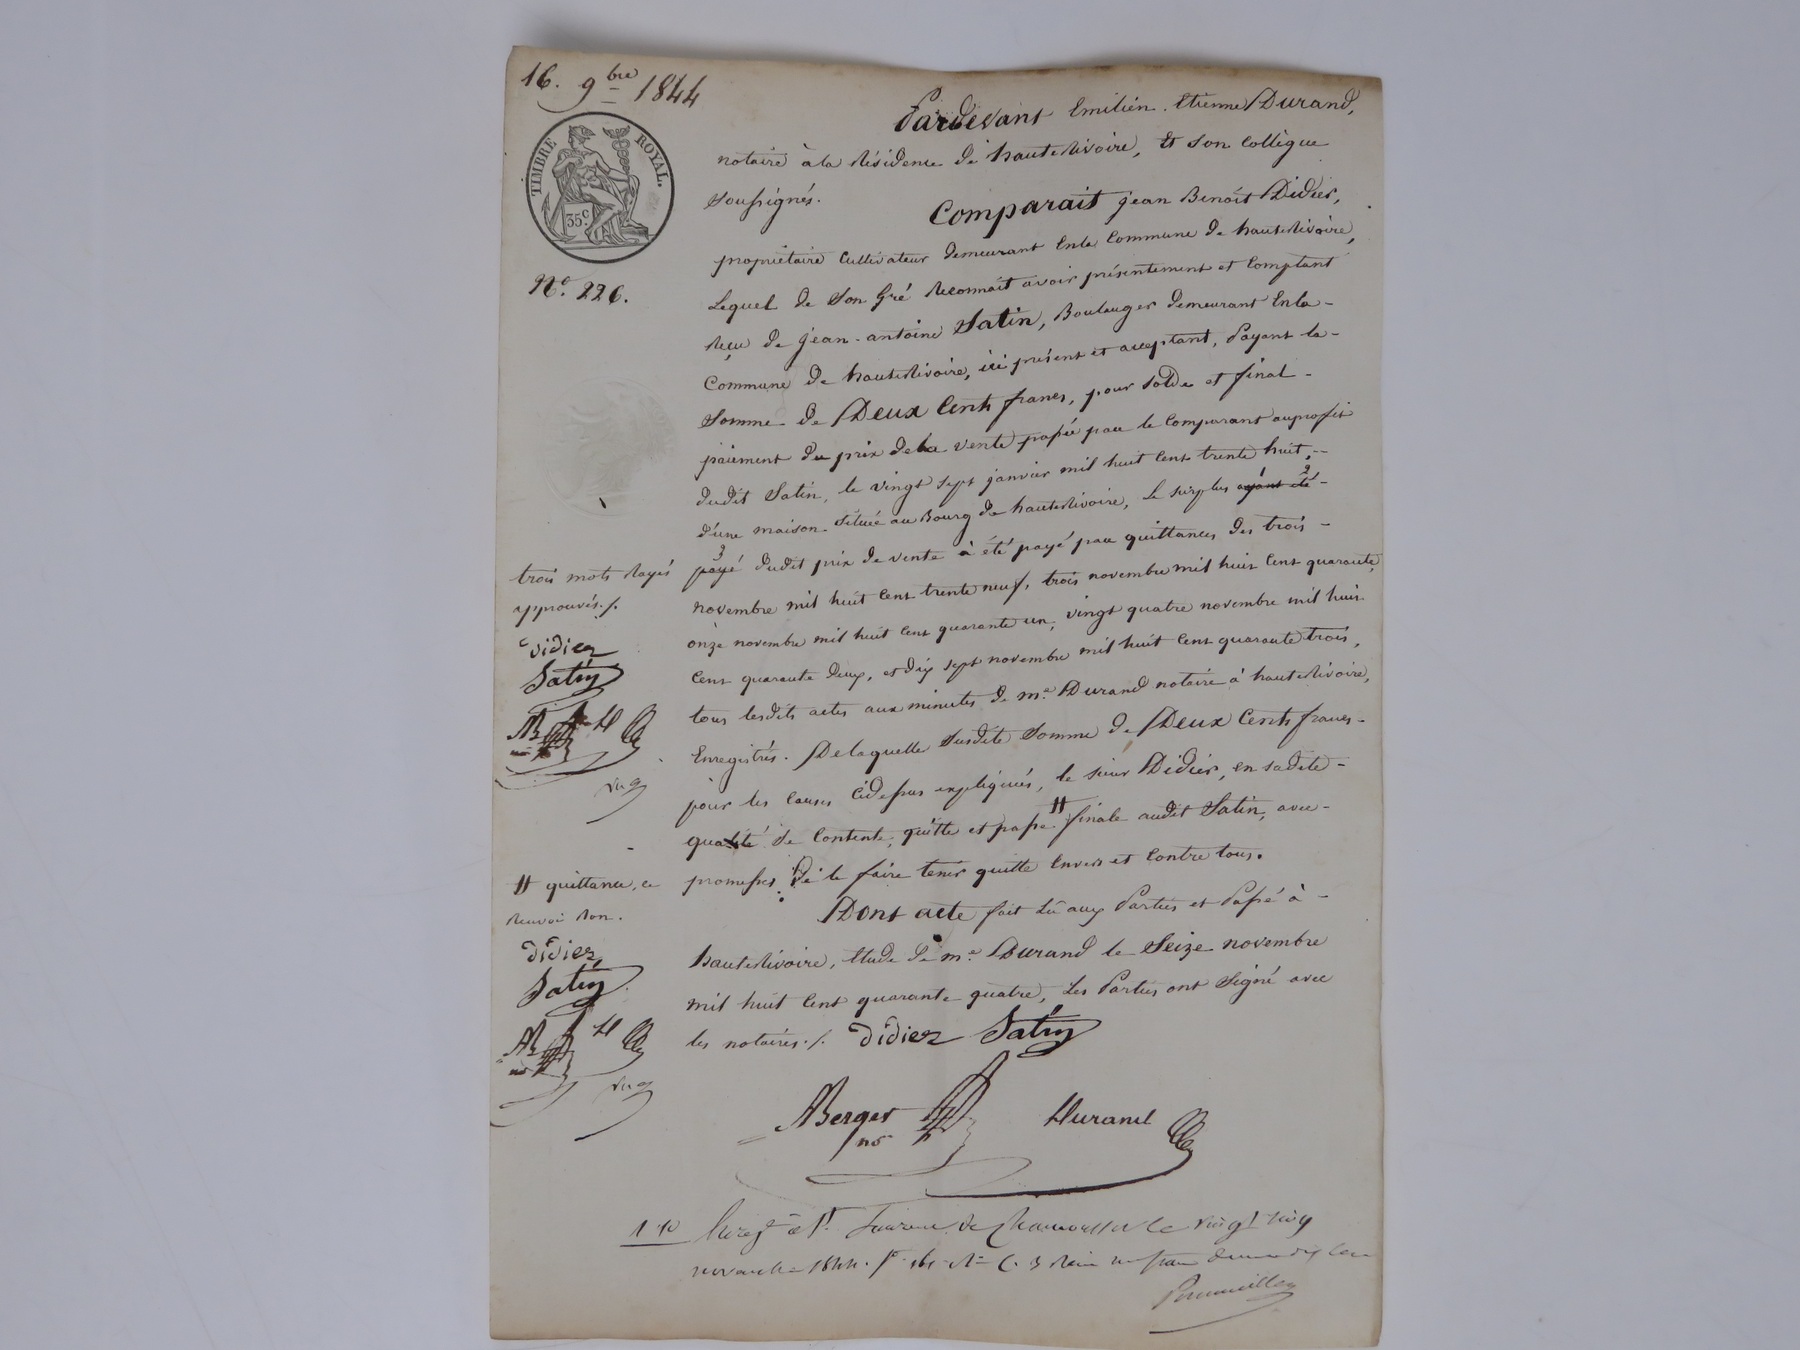 16. 9bre 1844
TIMBRE ROYAL.
35c.
No. 226.
Pardevant Emilien Etienne Durand,
notaire à la Résidence de hauterivoire, Et son Collègue
soussignés.
Comparait jean Benoît Didier,
propriétaire Cultivateur demeurant Enla Commune de hauterivoire,
Lequel de Son Gré Reconnaît avoir présentement et Comptant
Reçu de jean-antoine Satin, Boulanger demeurant Enla-
Commune de hauterivoire, ici présent et acceptant, Payant la-
Somme de Deux Cents francs, pour solde et final-
paiement du prix dela vente passée par le Comparant auprofit
dudit Satin, le vingt sept janvier mil huit Cent trente huit,-
d'une maison située au Bourg de hauterivoire, Le surplus ayant été-
payé dudit prix de vente à été payé par quittances des trois-
novembre mil huit Cent trente neuf, trois novembre mil huit Cent quarante,
onze novembre mil huit Cent quarante un, vingt quatre novembre mil huit
Cent quarante deux, et dix sept novembre mil huit Cent quarante trois,
tous lesdits actes aux minutes de me. Durand notaire à hauterivoire,
Enregistrés. Delaquelle susdite Somme de Deux Cents francs-
pour les Causes Cidessus expliquées, le sieur Didier, en sadite-
qualité se Contente, quitte et passe # finale audit Satin, avec-
promesses de le faire tenir quitte Envers et Contre tous.
Dont acte fait Lû aux Parties et Passé à-
hauterivoire, Etude de me. Durand le Seize novembre
mil huit Cent quarante quatre, Les Parties ont Signé avec
les notaires./.
Didier Satin
ABerger
Durand
trois mots Rayés
approuvés./.
Didier
Satin
# quittance, ce
Renvoi bon.
Didier
Satin
novembre 1844.